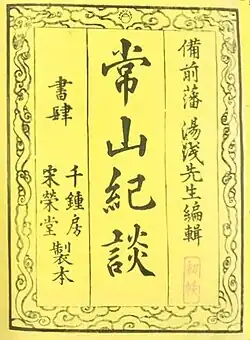 備前藩 湯浅先生編輯
初編
常山紀談
書肆
千鍾房
宋榮堂 製本